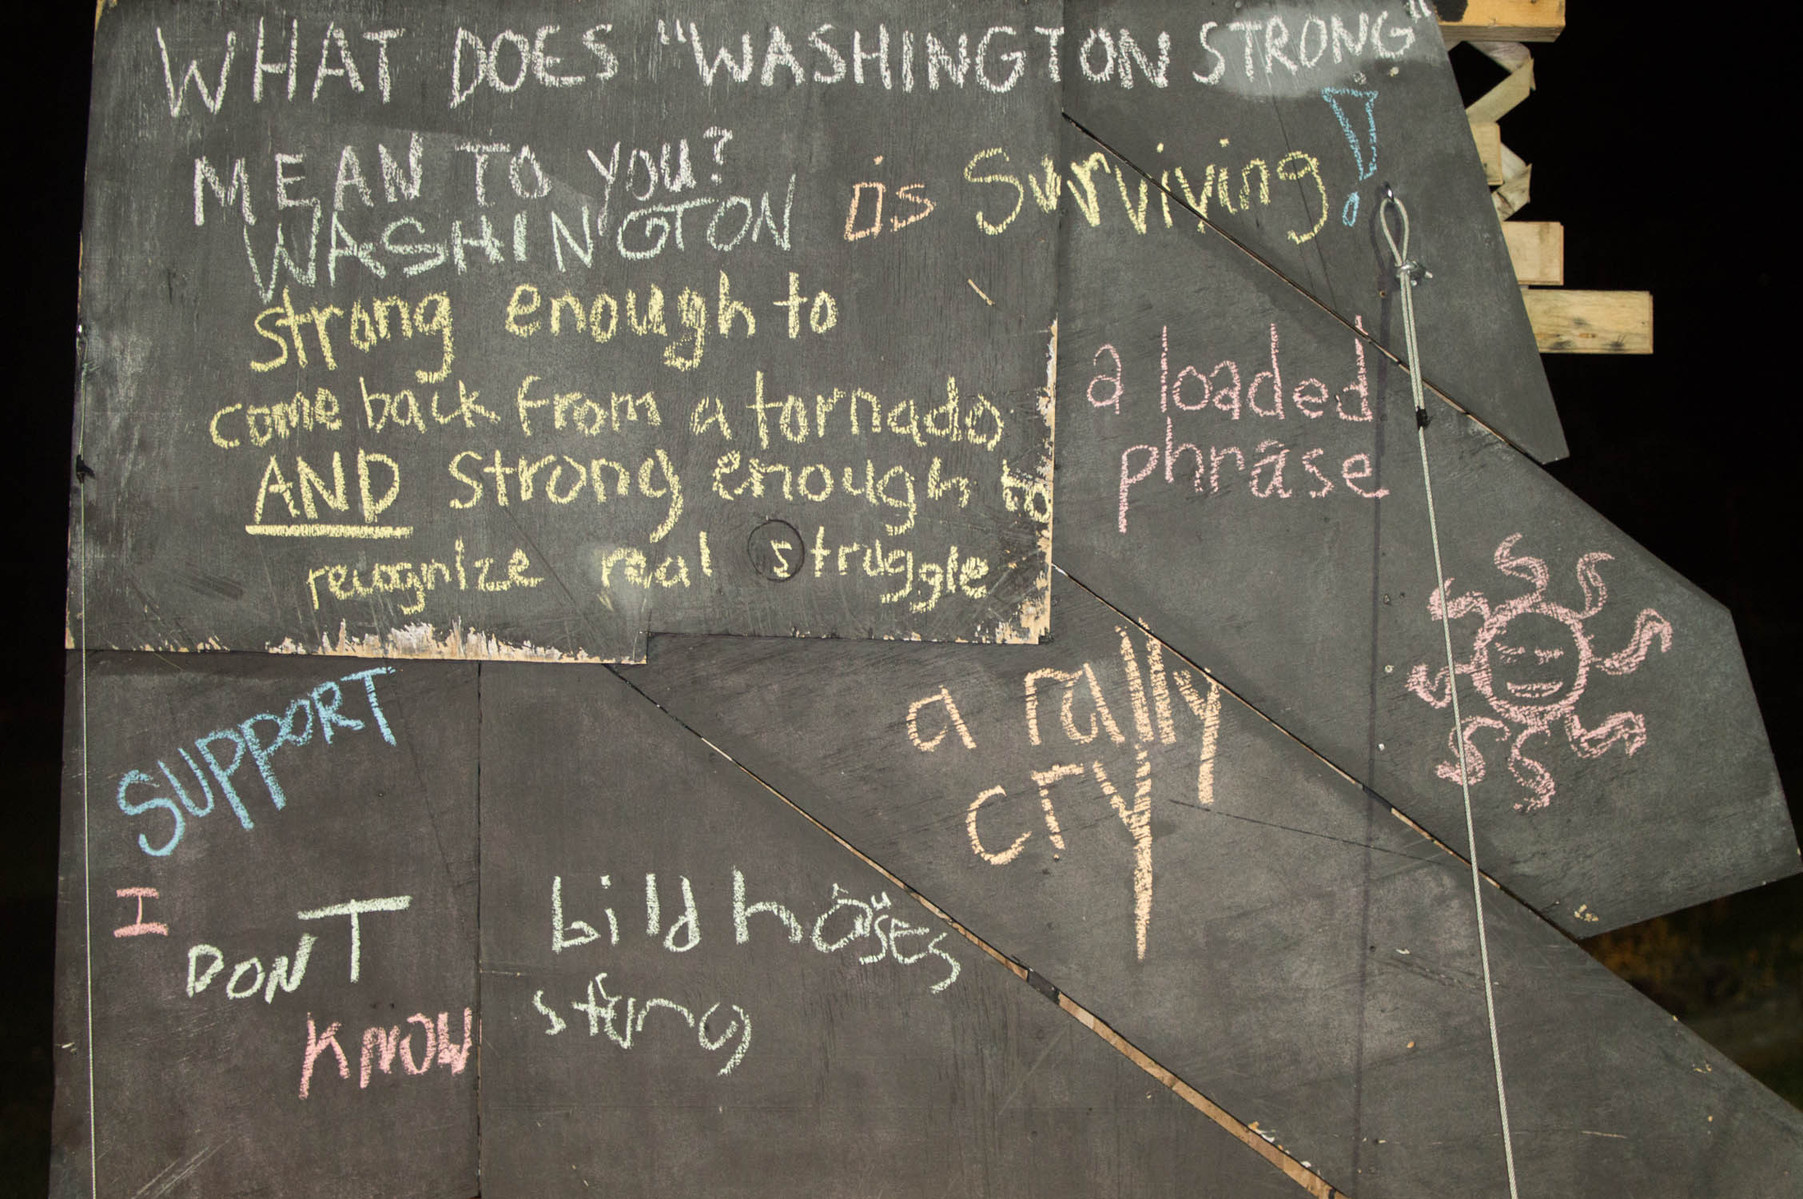 WHAT DOES "WASHINGTON STRONG"
MEAN TO YOU?
WASHINGTON is Surviving!
strong enough to
come back from a tornado
AND strong enough to
recognize real struggle
a loaded
phrase
a rally
cry
SUPPORT
I
DON'T
KNOW
bild houses
strong